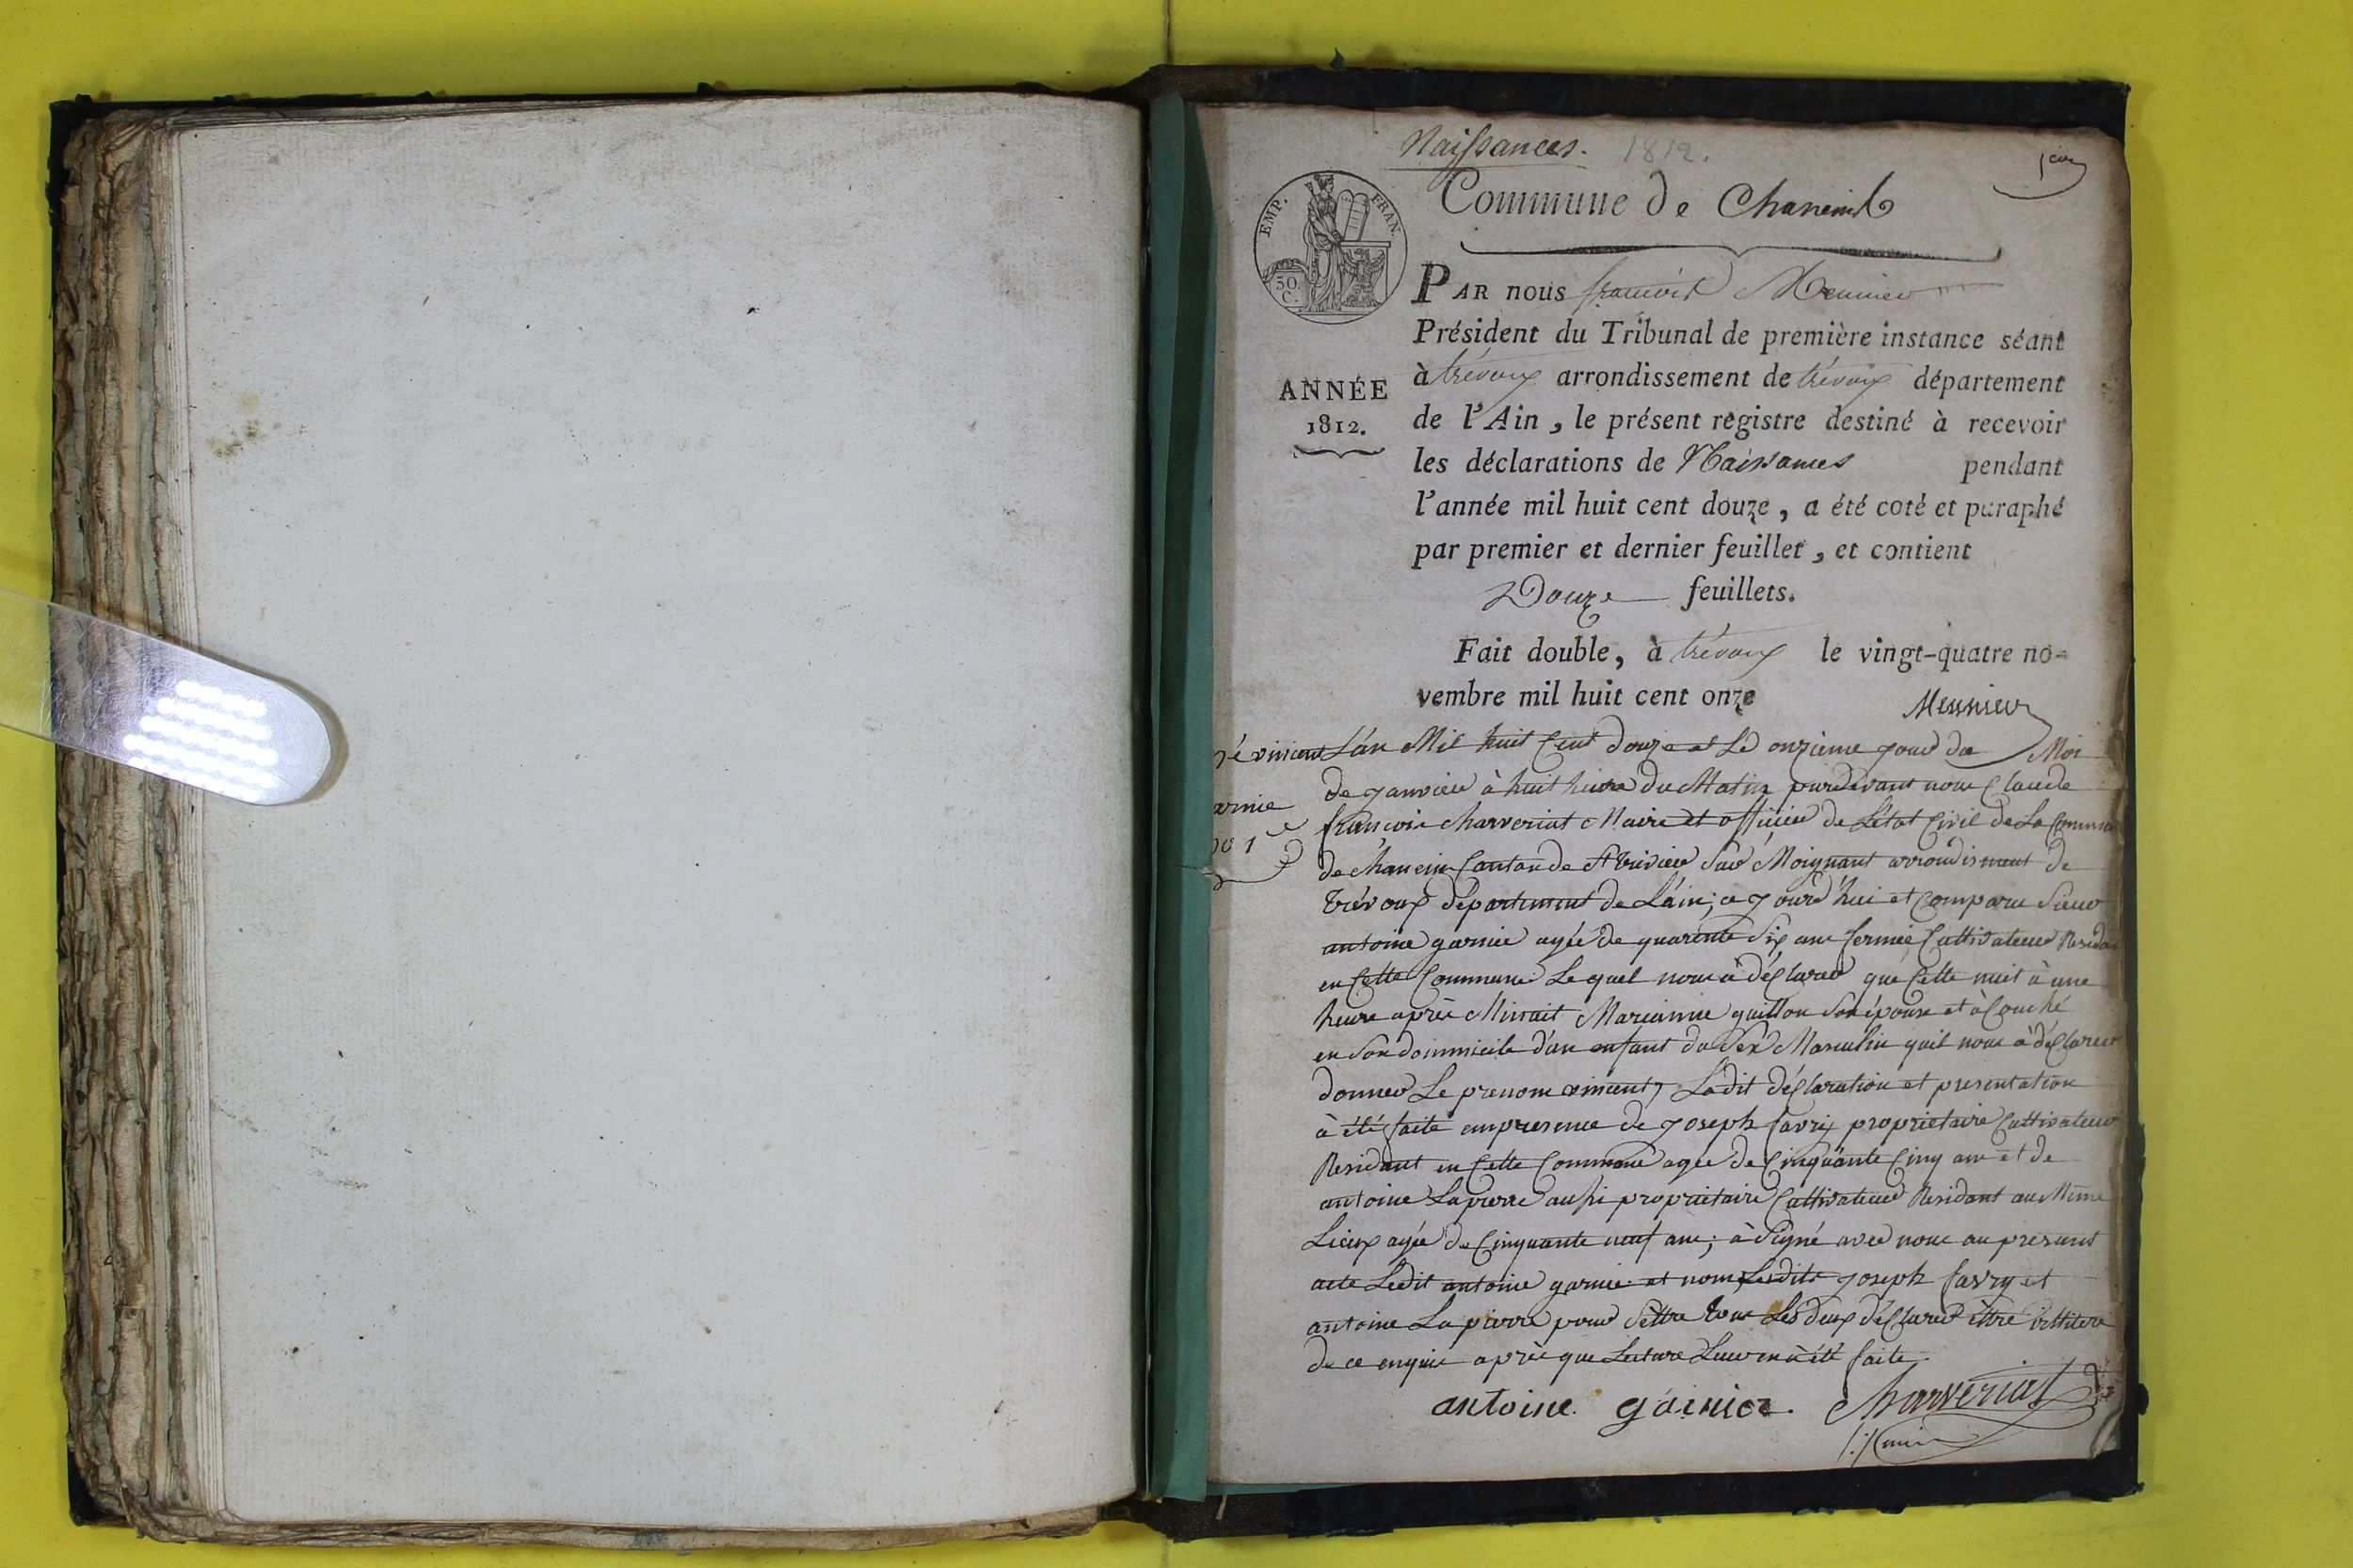 Naissances. 1812.
1er
Commune de Chaneins
EMP. FRAN.
30 C.
PAR nous françois Meunier
Président du Tribunal de première instance séant
à trévoux arrondissement de trévoux département
ANNÉE
1812.
de l'Ain, le présent registre destiné à recevoir
les déclarations de Naissances pendant
l'année mil huit cent douze, a été coté et paraphé
par premier et dernier feuillet, et contient
Douze feuillets.
Fait double, à trévoux le vingt-quatre no-
vembre mil huit cent onze
Meunier
né vincent
arnie
no 1
L'án Mil huit Cent douze et Le onzieme jour du Moi
de janvier à huit heure du Matin pardevant nous Claude
françois charveriat Maire et officier de L'état Civil de La Commune
de chanein Canton de St trivier sur Moignant arrondisment de
trévoux département de L'áin; ce jourd'hui et Comparu Sieur
antoine garnier agée de quarente Six ans fermié Cultivateur Residant
en Cette Commune Le quel nous à déClarer que Cette nuit à une
heure après Minuit Marianne guillon Son épouse et àCouché
en Son dommicile d'un enfant du Sex Masculin quil nous à déClarer
donner Le prenom vincent, Ladit déClaration et presentation
à été faite en presence de joseph favrix proprietaire Cultivateur
Residant en Cette Commune agee de Cinquante Cinq ans et de
antoine Lapierre aussi proprietaire Cultivateur Residant au Même
Lieux agée de Cinquante neuf ans; à Signé avec nous au present
acte Ledit antoine garnier et nom Lesdits joseph favry et
antoine Lapierre pour Sêttre tous Les deux déClarer êttre illitere
de ce enquis après que Lecture Leur en à été faite.
antoine gáinier. Charveriat